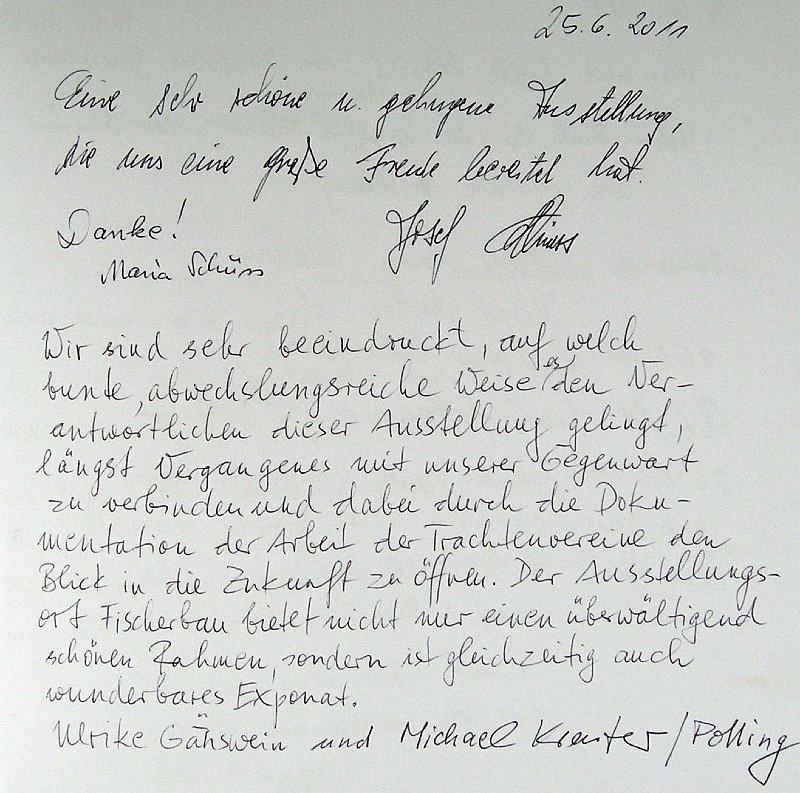 25.6.2011
Eine sehr schöne u. gelungene Ausstellung,
die uns eine große Freude bereitet hat.
Danke! Josef
Maria Schüss
Wir sind sehr beeindruckt, auf welch
bunte, abwechslungsreiche Weise es den Ver-
antwortlichen dieser Ausstellung gelingt,
längst Vergangenes mit unserer Gegenwart
zu verbinden und dabei durch die Doku-
mentation der Arbeit der Trachtenvereine den
Blick in die Zukunft zu öffnen. Der Ausstellungs-
ort Fischerbau bietet nicht nur einen überwältigend
schönen Rahmen, sondern ist gleichzeitig auch
wunderbares Exponat.
Ulrike Gänswein und Michael / Polling